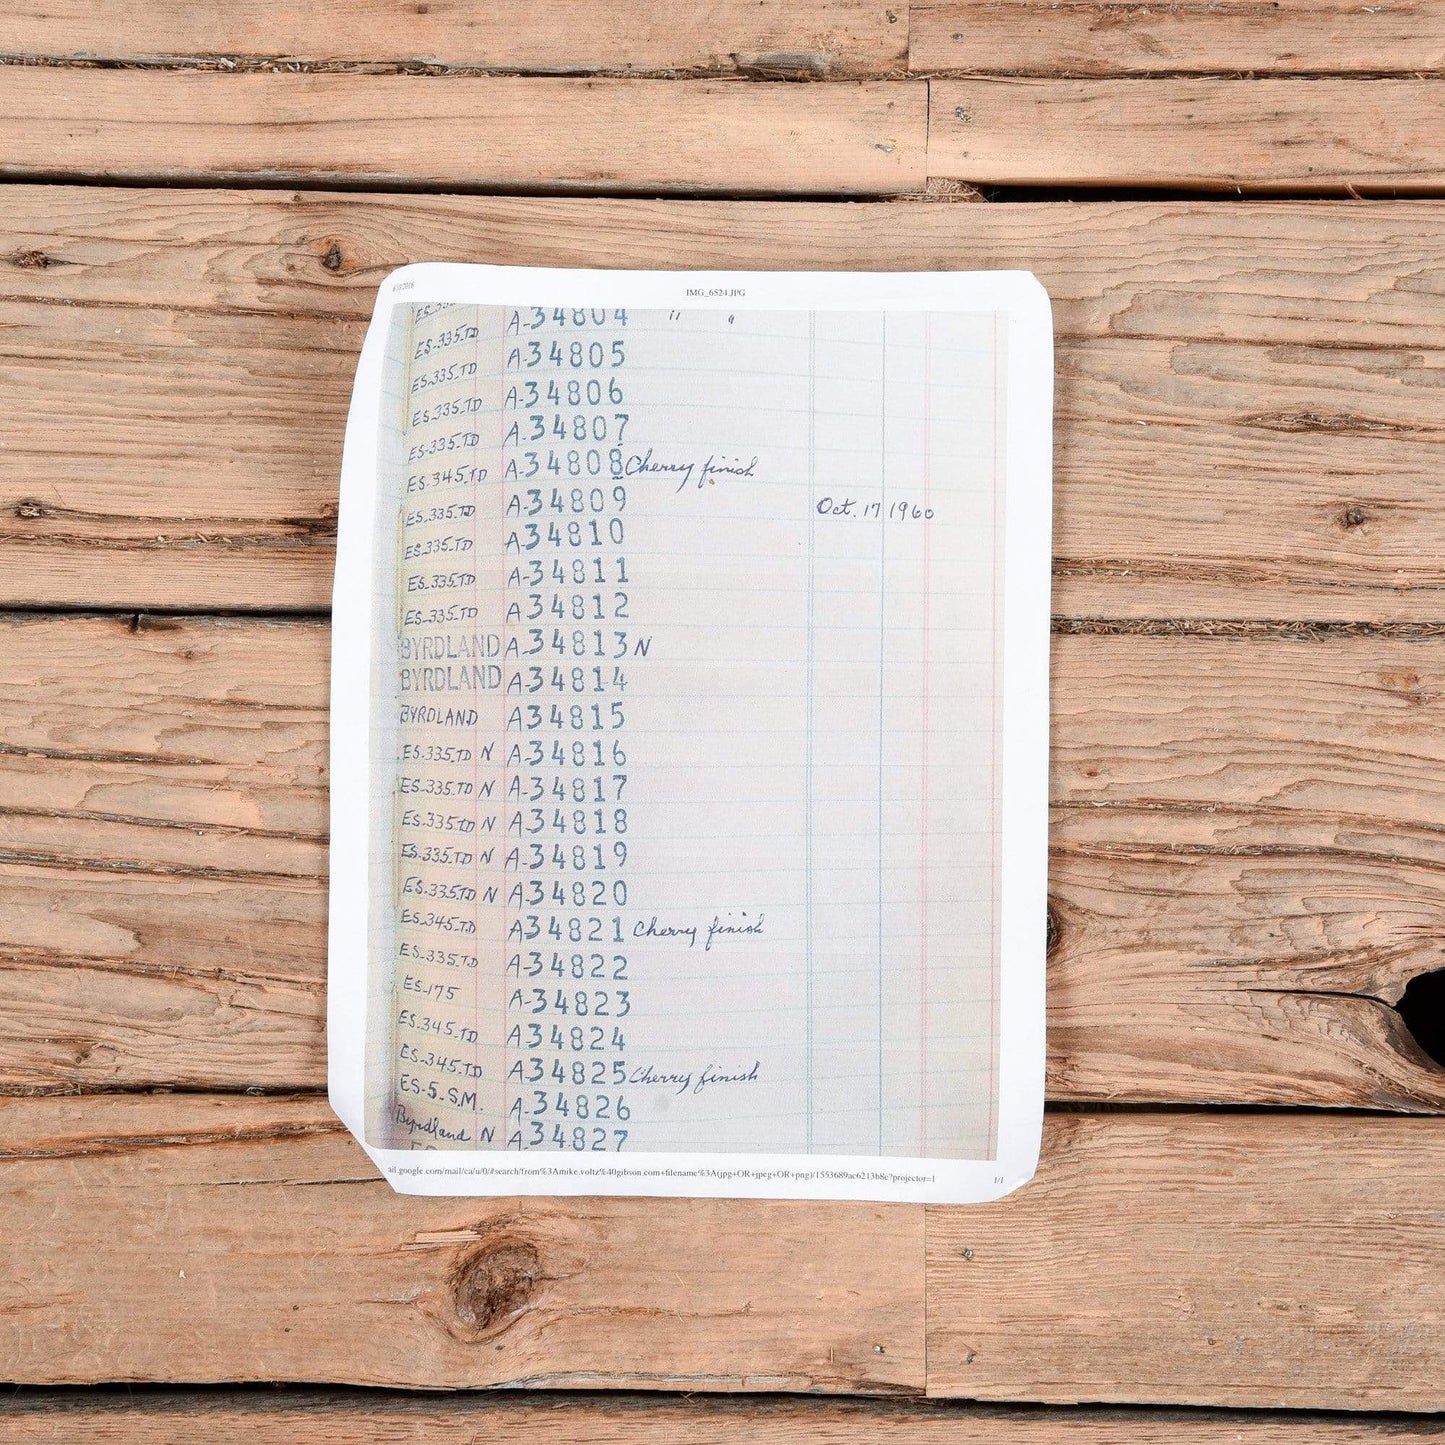 IMG_6524.JPG
A-34804 " "
ES-335-TD A-34805
ES-335-TD A-34806
ES-335-TD A-34807
ES-335-TD A-34808 Cherry finish
ES-345-TD A-34809 Oct. 17 1960
ES-335-TD A-34810
ES-335-TD A-34811
ES-335-TD A-34812
ES-335-TD
BYRDLAND A-34813 N
BYRDLAND A-34814
BYRDLAND A34815
ES-335-TD N A-34816
ES-335-TD N A-34817
ES-335-TD N A-34818
ES-335-TD N A-34819
ES-335-TD N A-34820
ES-345-TD A34821 Cherry finish
ES-335-TD A-34822
ES-175 A-34823
ES-345-TD A-34824
ES-345-TD A-34825 Cherry finish
ES-5-S.M. A-34826
Byrdland N A-34827
ail.google.com/mail/ca/u/0/#search/from%3Amike.voltz%40gibson.com+filename%3A(jpg+OR+jpeg+OR+png)/1553689ac6213b8e?projector=1 1/1